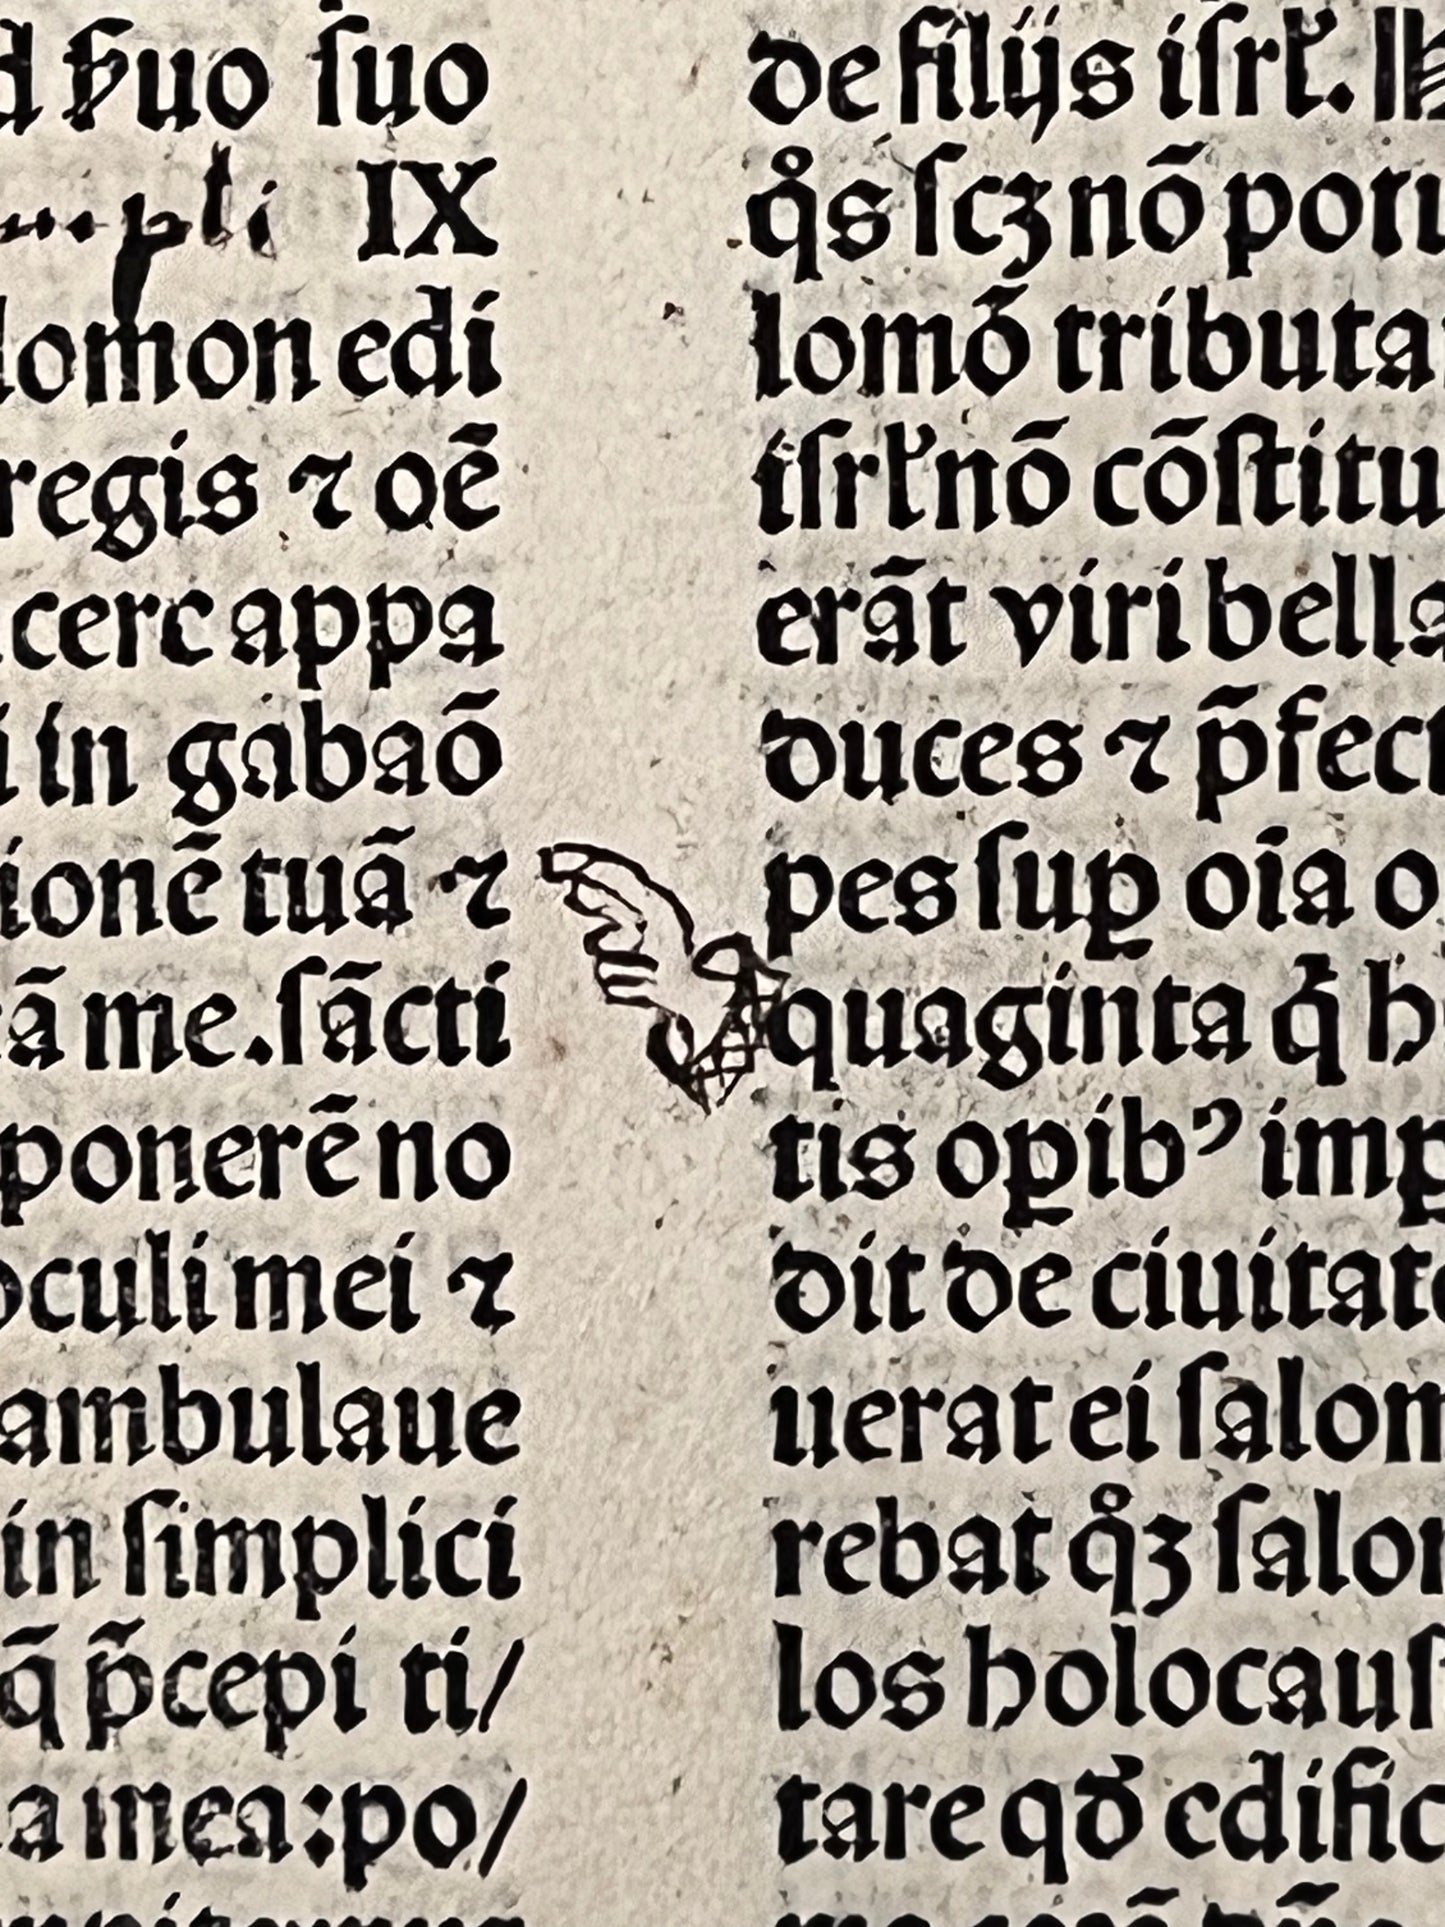 ħuo ſuo
IX
lomon edi
regis ⁊ oē
cere appa
in gabaō
ionē tuā ⁊
me.ſācti
ponerē no
oculi mei ⁊
ambulaue
in ſimplici
q̄ p̄cepi ti/
a mea:po/
de filijs iſrƚ.
qͦs ſcꝫ nō potu
lomō tributa
iſrƚ nō cōſtitu
erāt viri bella
duces ⁊ p̄fect
pes ſuꝑ oīa o
quaginta q̄ h
tis oꝑibꝰ imꝑ
dit de ciuitate
uerat ei ſalom
rebat qͦꝫ ſalom
los holocauſt
tare qð edific